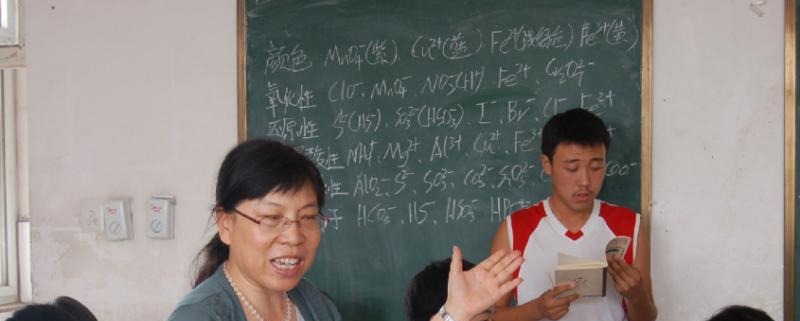 颜色 MnO₄⁻(紫)、Cu²⁺(蓝)、Fe²⁺(浅绿色) Fe³⁺(黄)
氧化性 ClO⁻、MnO₄⁻、NO₃⁻(H⁺) Fe³⁺、Cr₂O₇²⁻
还原性 S²⁻(HS⁻)、SO₃²⁻(HSO₃⁻)、I⁻、Br⁻、Cl⁻、Fe²⁺
酸性 NH₄⁺、Mg²⁺、Al³⁺、Cu²⁺、Fe
性 AlO₂⁻、S²⁻、SO₃²⁻、CO₃²⁻、SiO₃²⁻、 COO⁻
于 HCO₃⁻、HS⁻、HSO₃⁻